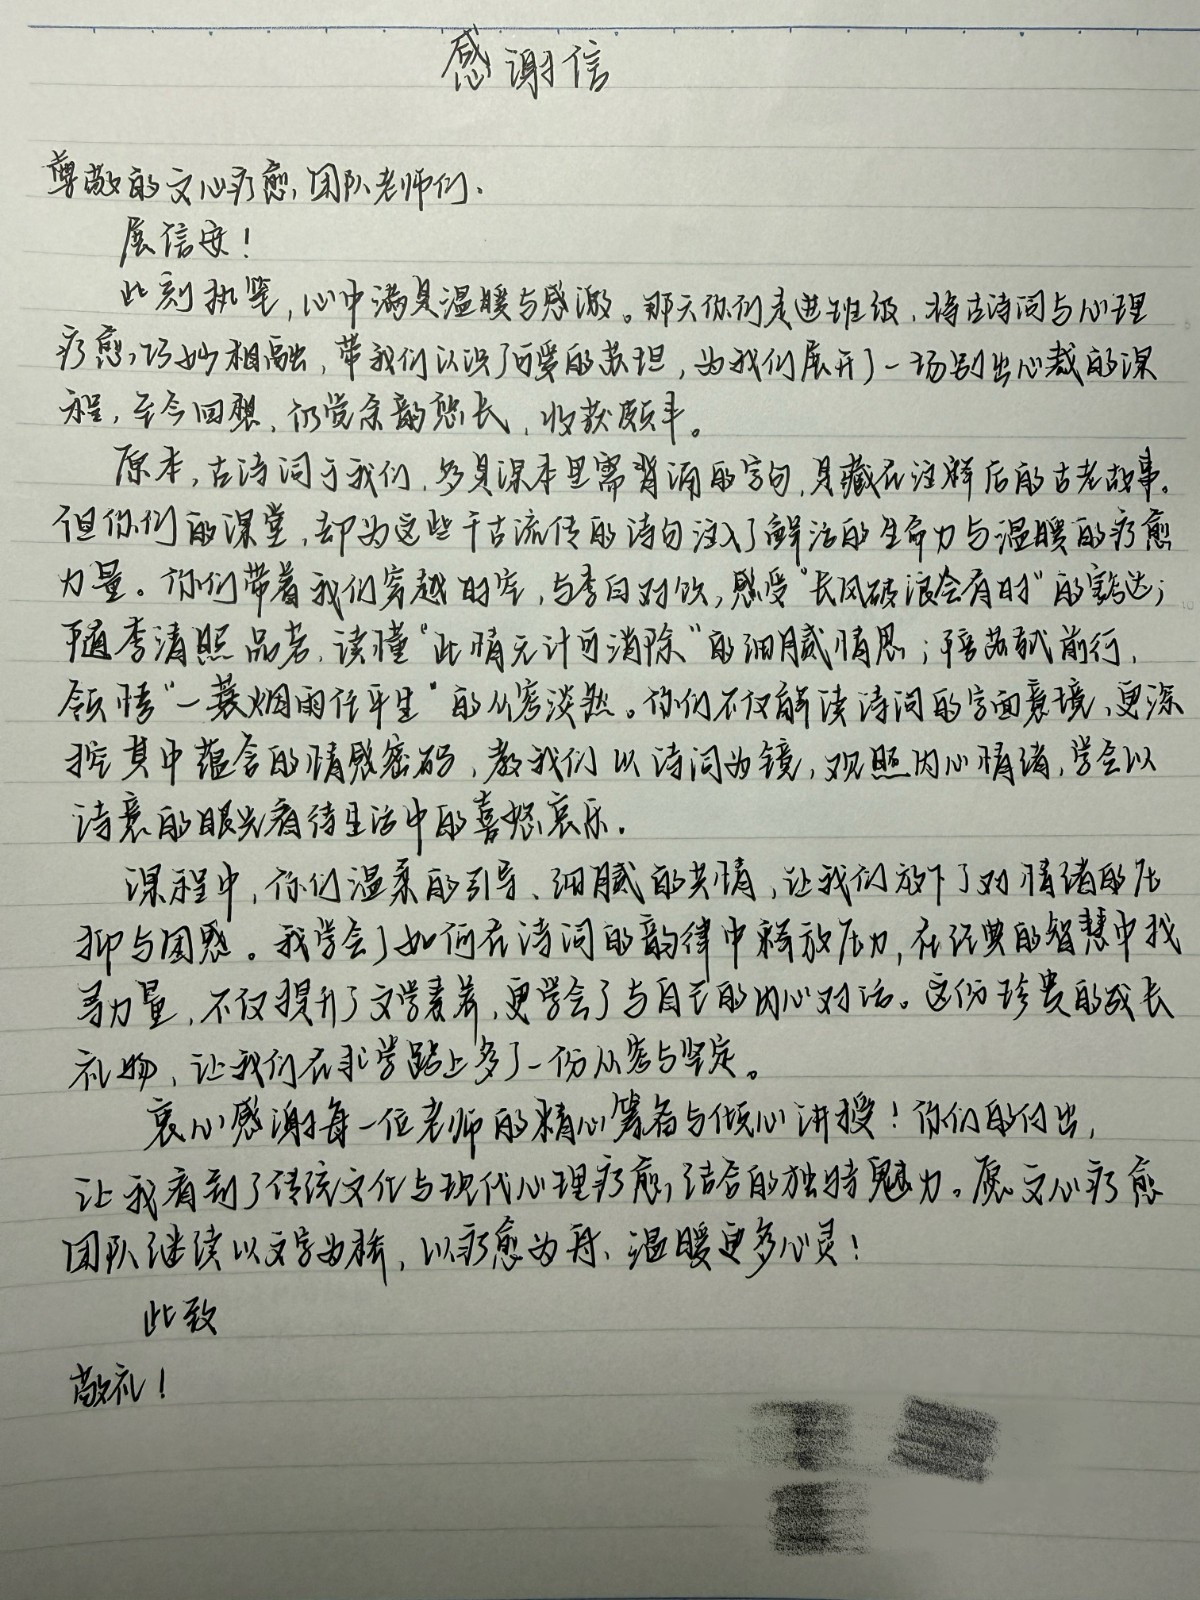 感谢信
尊敬的文心疗愈团队老师们、
展信安！
此刻执笔，心中满是温暖与感激。那天你们走进班级，将古诗词与心理
疗愈巧妙相融，带我们认识了可爱的苏坦，为我们展开了一场别出心裁的课
程，至今回想，仍觉余韵悠长，收获颇丰。
原本，古诗词于我们，多是课本里需背诵的字句，是藏在注释后的古老故事。
但你们的课堂，却为这些千古流传的诗句注入了鲜活的生命力与温暖的疗愈
力量。你们带着我们穿越时空，与李白对饮，感受“长风破浪会有时”的豁达；
随李清照品茗，读懂“此情无计可消除”的细腻情思；陪苏轼前行，
领悟“一蓑烟雨任平生”的从容淡然。你们不仅解读诗词的字面意境，更深
挖其中蕴含的情感密码，教我们以诗词为镜，观照内心情绪，学会以
诗意的眼光看待生活中的喜怒哀乐。
课程中，你们温柔的引导、细腻的共情，让我们放下了对情绪的压
抑与困惑。我学会了如何在诗词的韵律中释放压力，在经典的智慧中找
寻力量，不仅提升了文学素养，更学会了与自己的内心对话。这份珍贵的成长
礼物，让我们在求学路上多了一份从容与坚定。
衷心感谢每一位老师的精心筹备与倾心讲授！你们的付出，
让我看到了传统文化与现代心理疗愈结合的独特魅力。愿文心疗愈
团队继续以文字为桥，以疗愈为舟、温暖更多心灵！
此致
敬礼！